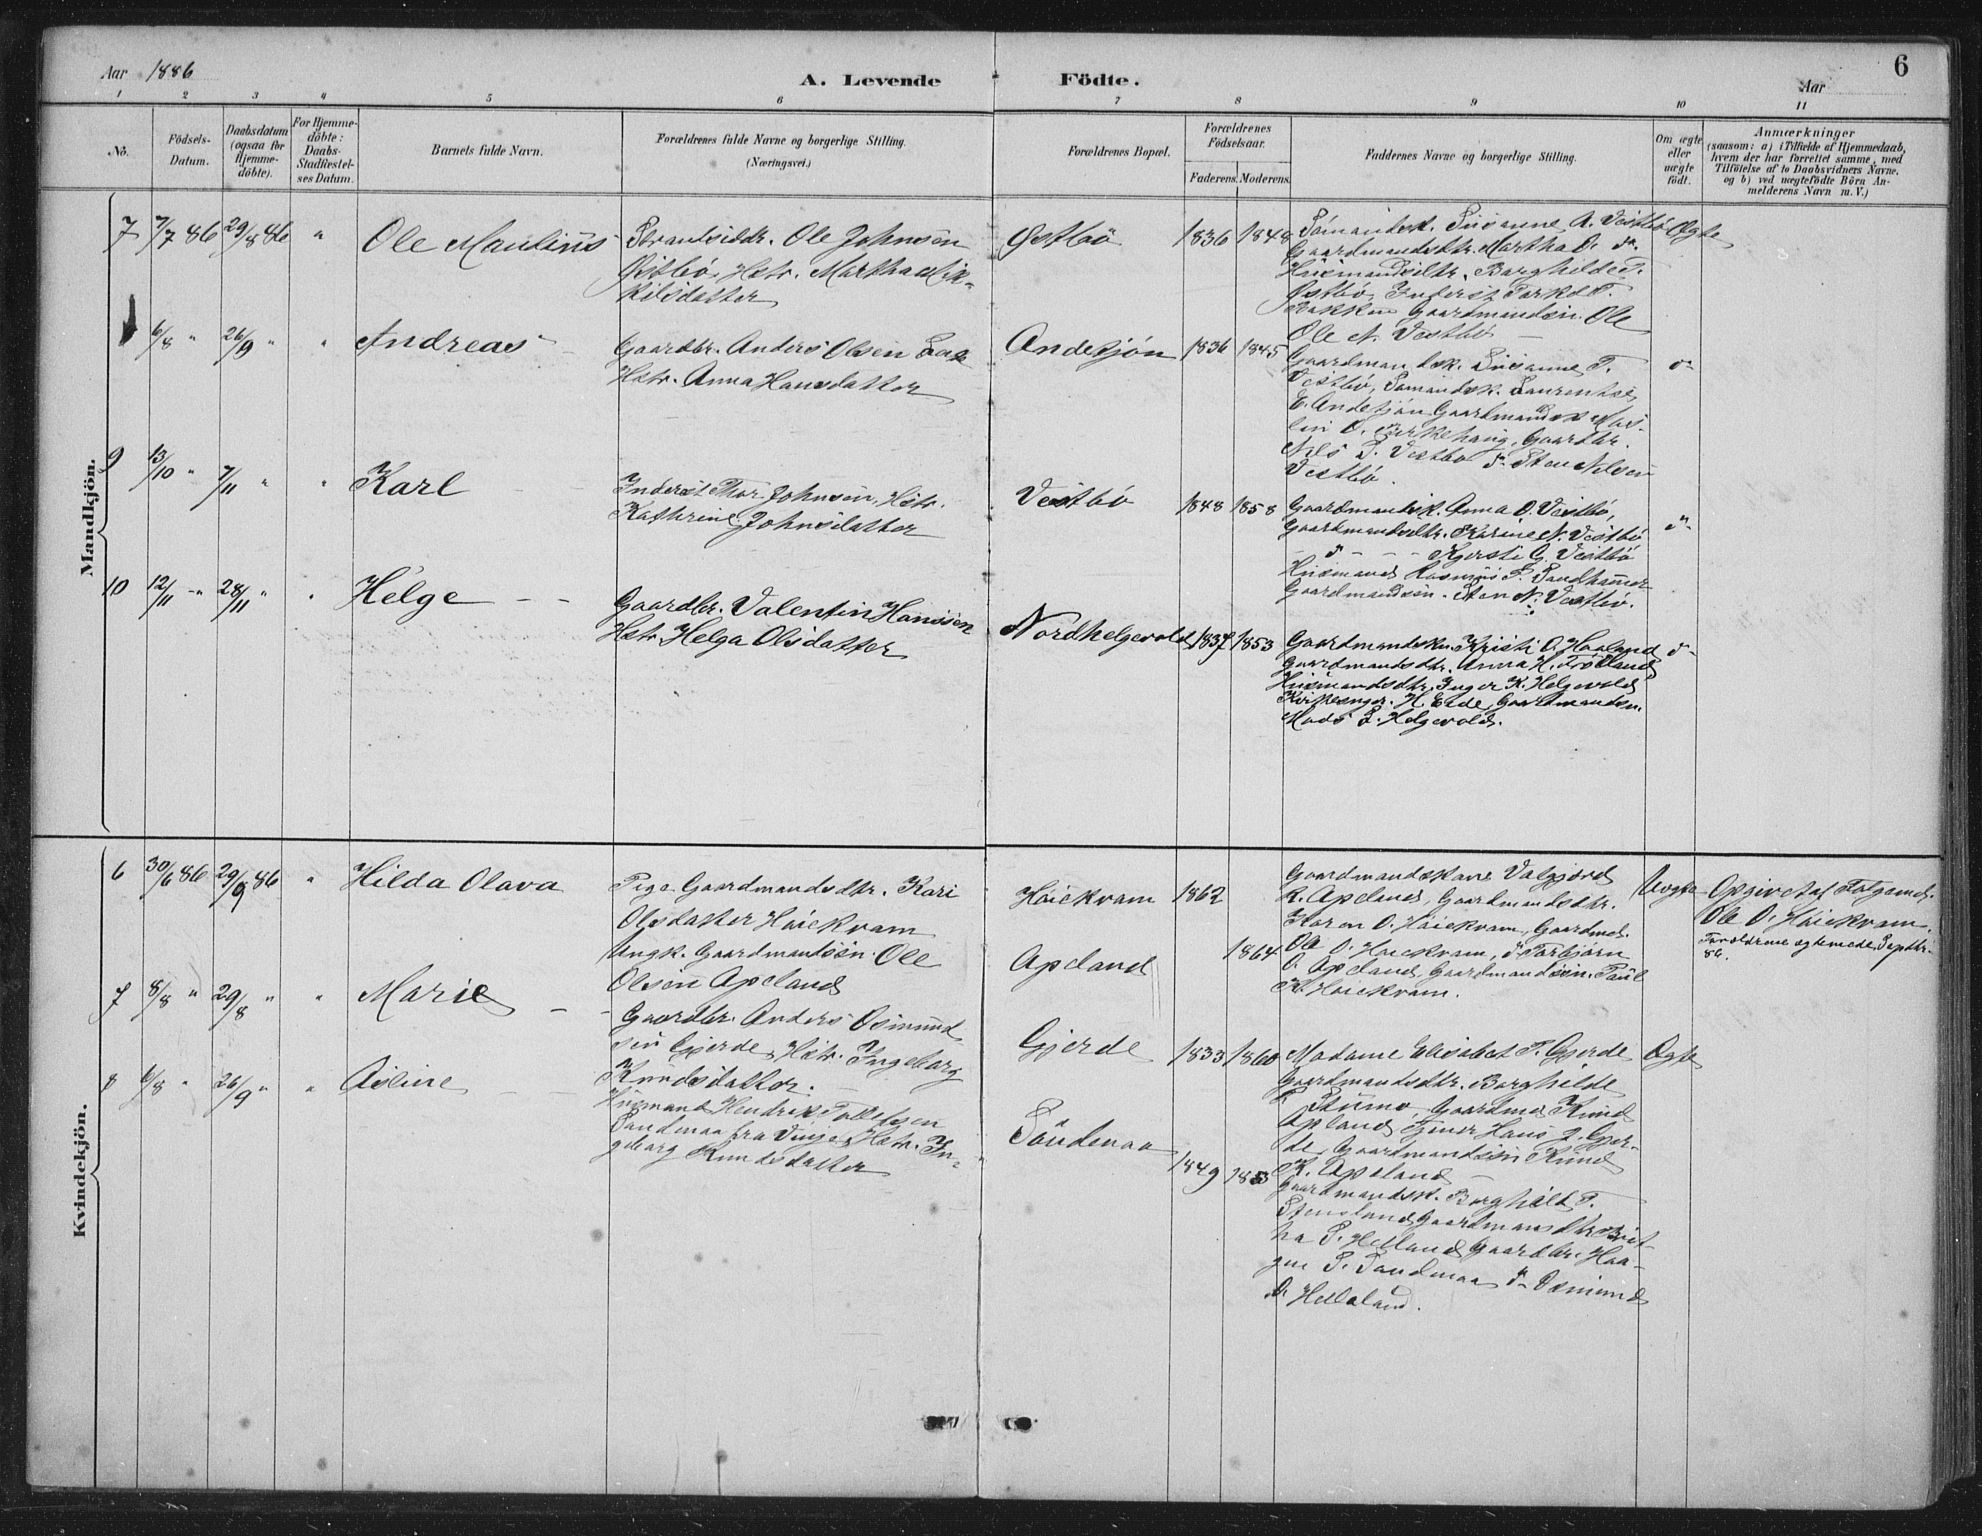 6
Aar 1886
A. Levende Födte.
Aar
1 2 3 4 5 6 7 8 9 10 11
No.
Födsels-
Datum.
Daabsdatum
(ogsaa for
Hjemme-
döbte).
For Hjemme-
döbte:
Daabs-
Stadfæstel-
ses Datum.
Barnets fulde Navn.
Forældrenes fulde Navne og borgerlige Stilling.
(Næringsvei.)
Forældrenes Bopæl.
Forældrenes
Födselsaar.
Faderens. Moderens.
Faddernes Navne og borgerlige Stilling.
Om ægte
eller
uægte
födt.
Anmærkninger
(saasom: a) i Tilfælde af Hjemmedaab,
hvem der har forrettet samme, med
Tilföielse af to Daabsvidners Navne,
og b) ved uægtefödte Börn An-
melderens Navn m. V.)
Mandkjön.
7 7/7 86 29/8 86 " Ole Maulius
Strandsiddr. Ole Johnsen
Østbö, Hstr. Martha Mik-
kilsdatter
Østbö 1836 1848
Sömandsk. Susanne A. Vestbö
Gaardmandsdtr. Martha O. do
Huusmandsdtr. Borghilde T.
Østbö, Inderst Torkel T.
Bakken Gaardmandsön Ole
Ole N. Vestbö
Ægte
6/8 " 26/9 " " Andreas
Gaardbr. Anders Olsen
Hstr. Anna Hansdatter
Andesjön 1836 1845
Gaardmandsk. Susanne T.
Vestbö, Sömandsk. Laurentse
E. Andesjön Gaardmandsk
O. Birkehaug, Gaardbr.
Nils P. Vestbö do Sten Nilsen
Vestbö.
do
9 13/10 " 7/11 " " Karl
Inderst Thor Johnsen, Hstr.
Kathrine Johnsdatter
Vestbö 1848 1858
Gaardmandsk. Anna O. Vestbö,
Gaardmandsdtr. Karine N. Vestbö
- do - - Kjersti G. Vestbö
Husmand Rasmus S. Sandhammer
Gaardmandsön. Sten N. Vestbö.
do
10 12/11 " 28/11 " " Helge
Gaardbr. Valentin Hanssen
Hstr. Helga Olsdatter
Nordhelgevold 1837 1853
Gaardmandskone Kristi O. Haaland
Gaardmandsdtr. Anna H. Frölland
Husmandsdtr. Inger K. Helgevold
Kirkesanger. H. Eide, Gaardmandsn.
Mads L. Helgevold.
do
Kvindekjön.
6 30/6 86 29/8 86 " Hilda Olava
Pige Gaardmandsdtr. Kari
Olsdatter Höiekvam
Ungk. Gaardmandsön Ole
Olsen Apeland
Höiekvam 1862
Apeland 1864
Gaardmandskone Valgjerd
K. Apeland, Gaardmandsdtr.
Karen O. Höiekvam, Gaardmd.
Ole O. Höiekvam, do Torbjörn
O. Apeland, Gaardmandsön. Paul
K. Höiekvam.
Uægte
Opgivet af Folgemd.
Ole O. Höiekvam.
Foreldrene egtemede Septbr.
86.
7 8/8 " 29/8 " " Marie
Gaardbr. Anders Osmund
sen Gjerde, Hstr. Ingeborg
Knudsdatter.
Gjerde 1833 1860
Madame Elisabet T. Gjerde
Gaardmandsdtr. Borghilde
Stumo, Gaardmd Knud
Apeland Tjener Hans J. Gjer-
de, Gaardmandsön Knud
K. Apeland
Ægte
8 6/8 " 26/9 " " Asline
Husmand Hendrik Tollefsen
Sandmoa fra Vinje, Hstr. In-
geborg Knudsdatter
Sandmoa 1849 1853
Gaardmandsk. Borghild T.
Stensland Gaardmandsdtr. Brit-
ha S. Helland Gaardbr. Haa-
S. Sandmoa do Osmund
O. Helleland.